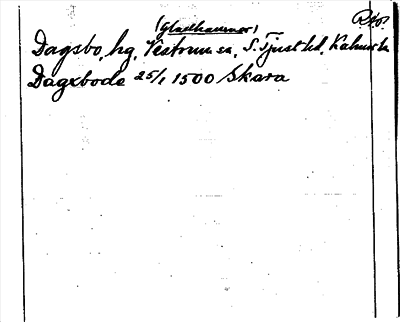 (Gladhammar)
Dagsbo, hg, Vestrum sn, S. Tjust hd, Kalmar l.
Dagxbode 25/1 1500 Skara